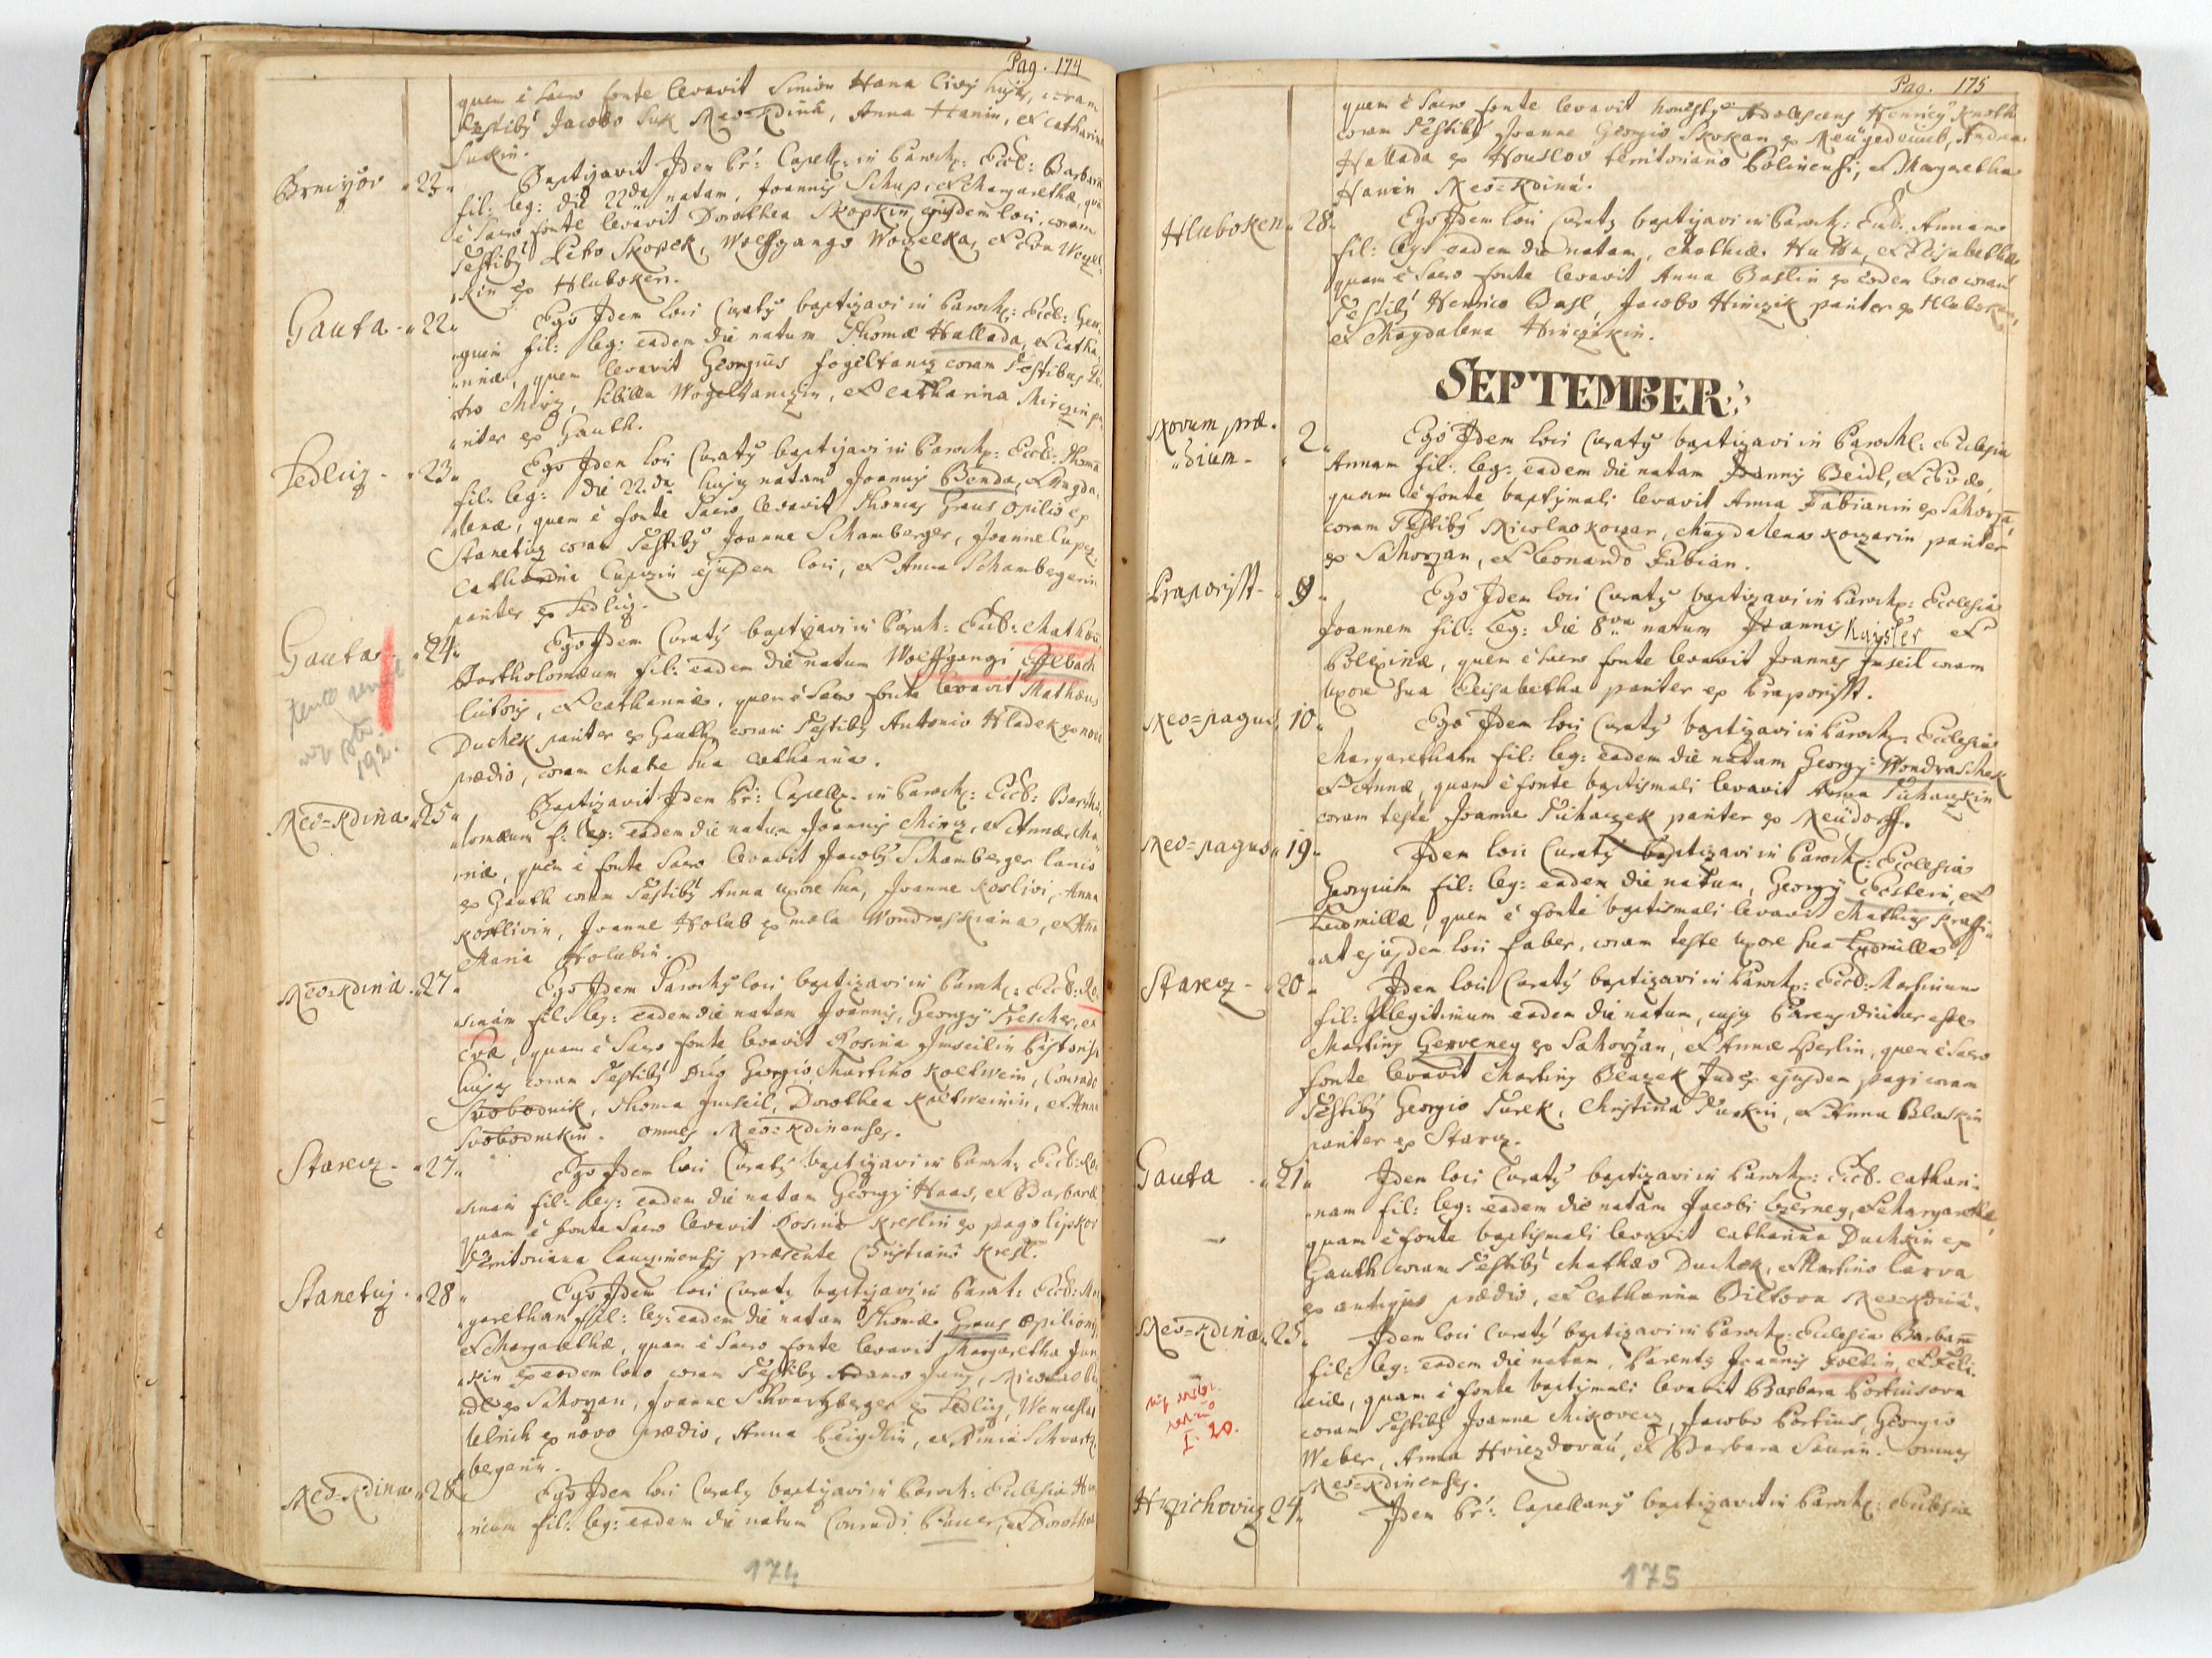 Pag. 174
quem è Sacro fonte levavit Simon Hana Civis hujus, coram
Testibus Jacobo Suk Neo-Kdinâ, Anna Hanin, et Catharina
Sukin.
23 Baptizavit Idem Pr: Capell: in Paroch: Eccl: Barbaram
fil: leg: die 22da natam, Joannis Schup, et Margarethæ, quam
è Sacro fonte levavit Dorothea Skopkin ejusdem loci, coram
Testibus Petro Skopek, Wolffgango Wozelka, et Eva Wozel-
kin ex Hluboken.
Gauta 22 Ego Idem loci Curatus baptizavi in Paroch: Eccl: Geor-
gium fil: leg: eadem die natum Thomæ Hallada, et Catha-
rinæ, quem levavit Georgius Fogeltanz coram Testibus Pe-
tro Mirz, Sibilla Wogeltanczin, et Catharina Mirczin pa-
riter ex Gauth.
Sedlicz 23 Ego Idem loci Curatus baptizavi in Paroch: Eccl: Thomam
fil: leg: die 22da hujus natum Joannis Benda, et Magda-
lenæ, quem è fonte Sacro levavit Thomas Graus Opilio ex
Stanetiz coram Testibus Joanne Schamberger, Joanne Cupcz
Catharina Cupczin ejusdem loci, et Anna Schambergerin
pariter ex Sedlicz.
Gauta 24 Ego Idem Curatus baptizavi in Paroch: Eccl: Mathæum
Bartholomæum fil: eadem die natum Wolffgangi Effelbach
Sutoris, et Catharinæ, quem è Sacro fonte levavit Mathæus
Duchek pariter ex Gauth, coram Testibus Antonio Hladek ex novo
prædio, coram Matre sua Catharina.
192.
Neo-Kdina 25 Baptizavit Idem Pr: Capell: in Paroch: Eccl: Bartho-
lomæum f: leg: eadem die natum Joannis Mirz, et Annæ Ma-
riæ, quem è fonte Sacro levavit Jacobus Schamberger Lanio
ex Gauth coram Testibus Anna uxore sua, Joanne Koslivi, Anna
Kostlivin, Joanne Holub ex mola Wondraskiana, et Anna
Maria Holubin.
Neo-Kdina 27 Ego Idem Parochus loci baptizavi in Paroch: Eccl: Ro-
sinam fil: leg: eadem die natam Joannis, Georgy Trescher, et
Evæ, quam è Sacro fonte levavit Rosina Imseilin Pistorissa
hujus coram Testibus Dno Georgio, Martino Koltwein, Conrado
Swobodnik, Thoma Imseil, Dorothea Koltweinin, et Anna
Svobodnikin. omnes Neo-Kdinenses.
Starecz 27 Ego Idem loci Curatus baptizavi in Paroch: Eccl: Ro-
sinam fil: leg: eadem die natam Georgy Haas, et Barbaræ,
quam è fonte Sacro levavit Rosina Kreslin ex pago Lipkov
Territoriana Lauczimensis præsente Christiano Kresl.
Stanetiz 28 Ego Idem loci Curatus baptizavi in Paroch: Eccl: Mar-
garetham fil: leg: eadem die natam Thomæ Graus Opilionis,
et Margarethæ, quam è Sacro fonte levavit Margaretha Jun-
kin ex eodem loco coram Testibus Adamo Jung, Nicolao
ex Sahorzan, Joanne Schwartzberger ex Sedliz, Wenceslao
Ulrich ex novo prædio, Anna et Anna Schwartz-
bergerin.
Neo-Kdina 28 Ego Idem loci Curatus baptizavi in Paroch: Ecclesia Hen-
ricum fil: leg: eadem die natum Conradi Bauer, et Dorotheæ
174
Pag. 175
quem è Sacro fonte levavit honestus Adolescens Henricus Knoth
coram Testibus Joanne Georgio Skokan ex Neügedeinb, Andrea
Hallada ex Houslov territoriano Bolinensi, et Margaretha
Hanin Neo-Kdinâ.
Hluboken 28 Ego Idem loci Curatus baptizavi in Paroch: Eccl: Annam
fil: leg: eadem die natam, Mathiæ Hutta, et Elisabethæ
quam è Sacro fonte levavit Anna Baslin ex eodem loco coram
Testibus Henrico Basl, Jacobo Hinczik pariter ex Hluboken,
et Magdalena Hinczikin.
SEPTEMBER
Novum præ-
dium 2 Ego Idem loci Curatus baptizavi in Parochl: Ecclesia
Annam fil: leg: eadem die natam Joannis Beidl, et Evæ,
quam è fonte baptismali levavit Anna Fabianin ex Sahorzan,
coram Testibus Nicolao Kozar, Magdalena Kozarin pariter
ex Sahorzan, et Leonardo Fabian.
Praporisst 9 Ego Idem loci Curatus baptizavi in Paroch: Ecclesia
Joannem fil: leg: die 8va natum Joannis Kayser et
Polexinæ, quem è Sacro fonte levavit Joannes Imseil coram
Uxore sua Elisabetha pariter ex Praporisst.
Neo-pagus 10 Ego Idem loci Curatus baptizavi in Paroch: Ecclesia
Margaretham fil: leg: eadem die natam Georgy Wondraschek
et Annæ, quam è fonte baptismali levavit Anna Tuhaczkin
coram teste Joanne Tuhaczek pariter ex Neüdorff.
Neo-pagus 19 Idem loci Curatus baptizavi in Paroch: Ecclesia
Georgium fil: leg: eadem die natum, Georgy Ecstein, et
Ludmillæ, quem è fonte baptismali levavit Mathias
ejusdem loci faber, coram teste Uxore sua Ludmilla.
Starecz 20 Idem loci Curatus baptizavi in Paroch: Eccl: Martinum
fil: Illegitimum eadem die natum, cujus Parens dicitur esse
Martinus Gerveney ex Sahorzan, et Annæ Herlin, quem è Sacro
fonte levavit Martinus Blazek Judex ejusdem pagi coram
Testibus Georgio Turek, Christina Turkin, et Anna Blaskin
pariter ex Starcz.
Gauta 21 Idem loci Curatus baptizavi in Paroch: Eccl: Cathari-
nam fil: leg: eadem die natam Jacobi Czerney, et Margarethæ,
quam è fonte baptismali levavit Catharina Duchkin ex
Gauth coram Testibus Mathæo Duchek, et Martino Carva
ex antiquo prædio, et Catharina Biltova Neo-Kdinâ.
Neo-Kdina 23 Idem loci Curatus baptizavi in Paroch: Ecclesia Barbaram
fil: leg: eadem die natam, Parentis Joannis Foltin, et Feli-
ciæ, quam è fonte baptismali levavit Barbara Portiusova
coram Testibus Joanne Mikovecz, Jacobo Portius, Georgio
Weber, Anna Hviezdovau, et Barbara Saurin. omnes
Neo-Kdinenses.
I. 20.
Hrzichovicz 24 Idem Pr: Capellanus baptizavit in Paroch: Ecclesia
175